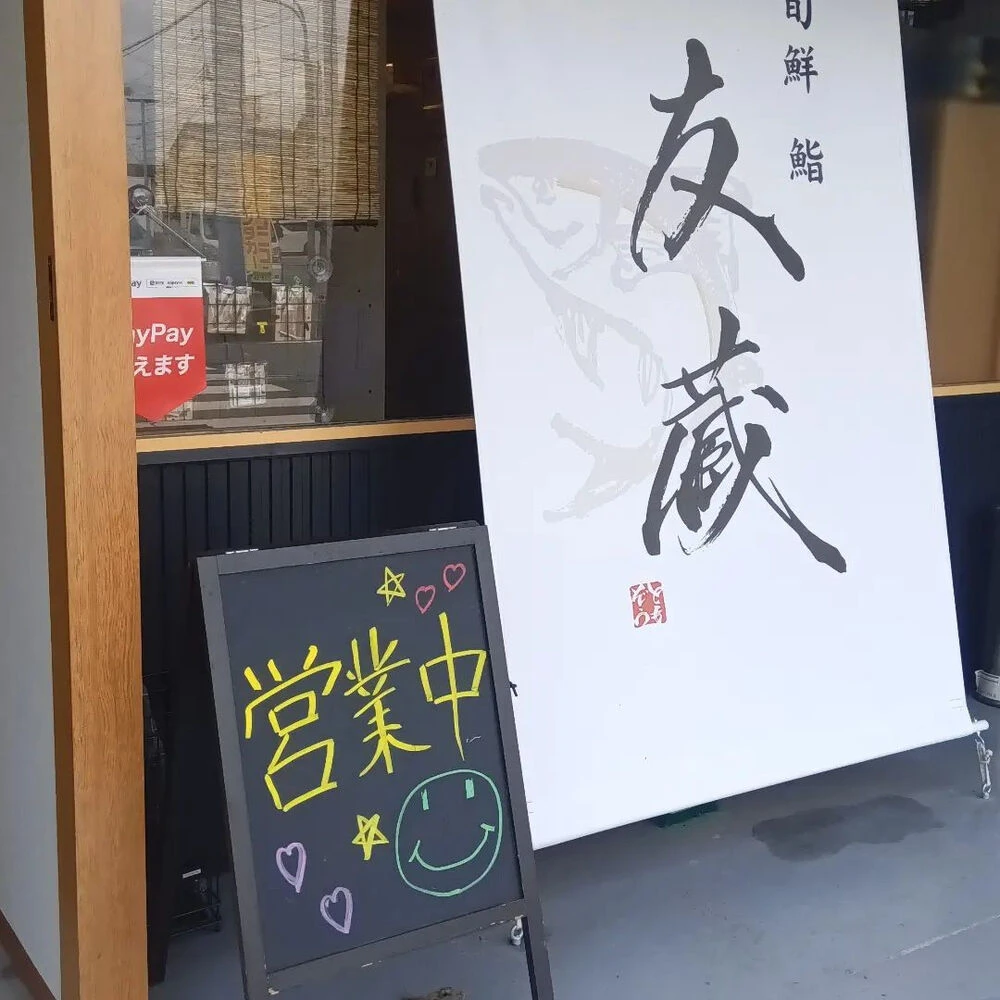 旬鮮 鮨
友蔵
ayPay
えます
営業中